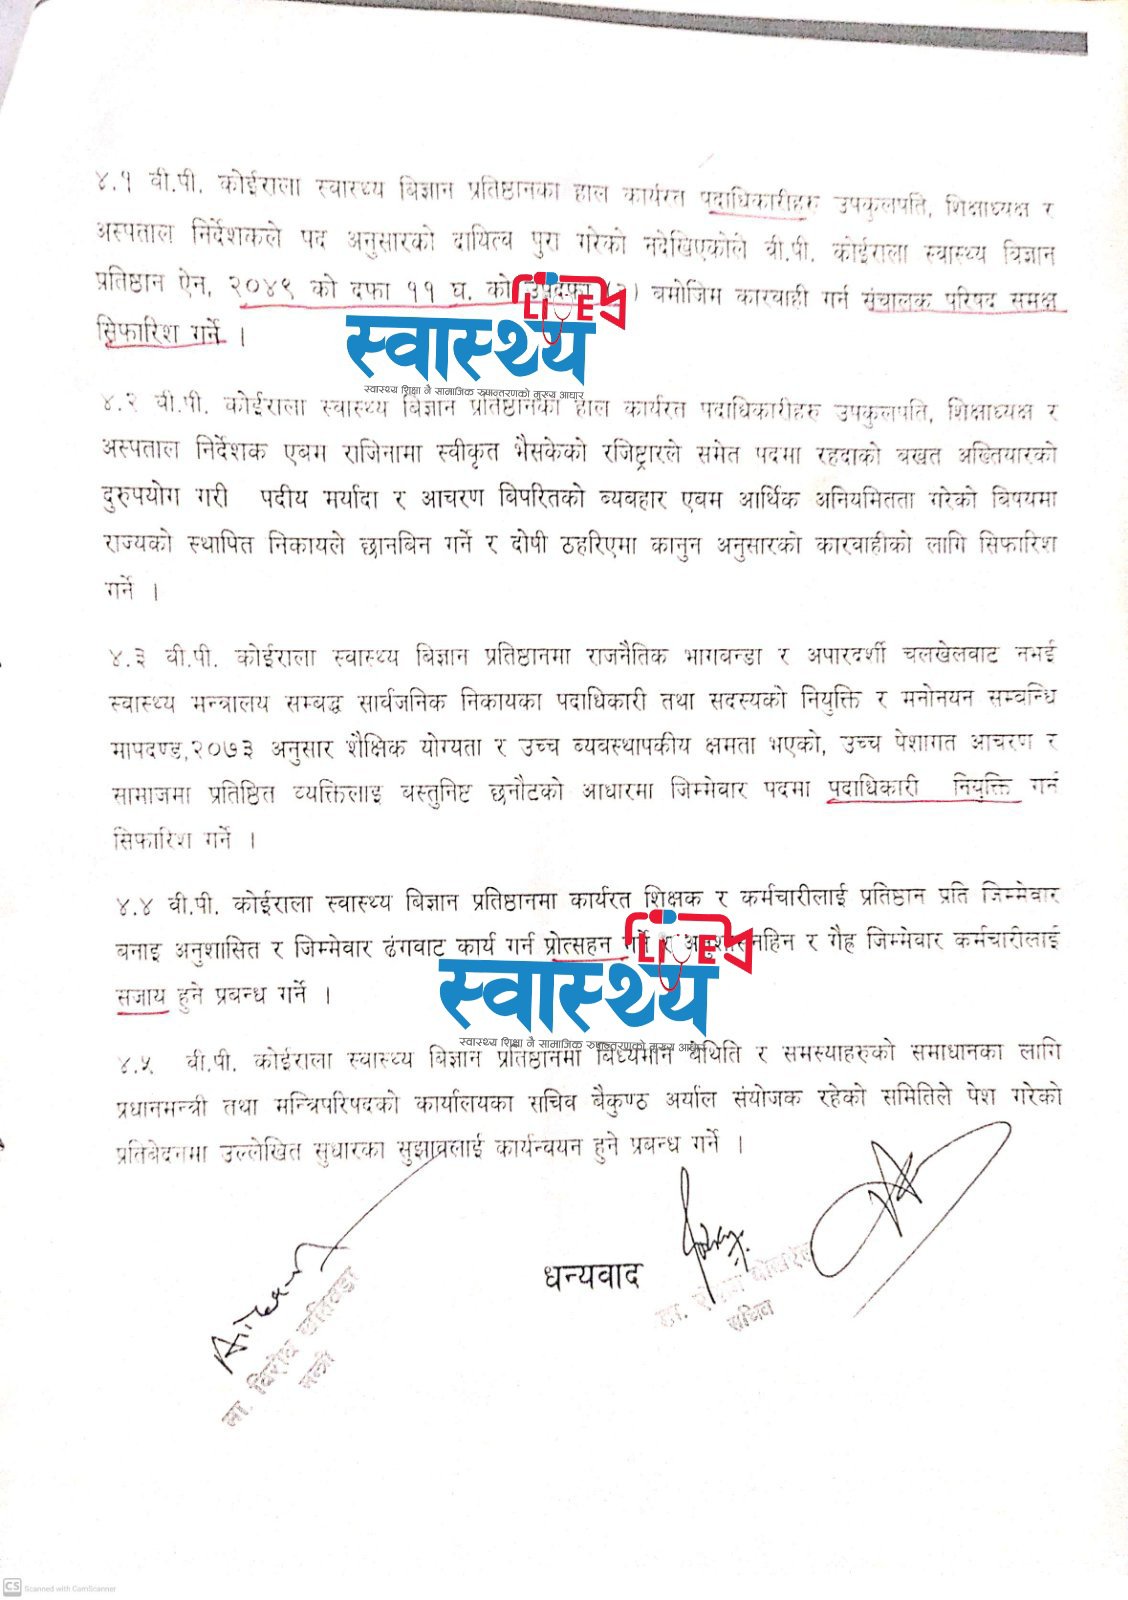 ४.१ वी.पी. कोईराला स्वास्थ्य बिज्ञान प्रतिष्ठानका हाल कार्यरत पदाधिकारीहरु उपकुलपति, शिक्षाध्यक्ष र
अस्पताल निर्देशकले पद अनुसारको दायित्व पुरा गरेको नदेखिएकोले वी.पी. कोईराला स्वास्थ्य बिज्ञान
प्रतिष्ठान ऐन, २०४९ को दफा ११ घ. को उपदफा (३) बमोजिम कारवाही गर्न संचालक परिषद समक्ष
सिफारिश गर्ने ।
LIVE
स्वास्थ्य
स्वास्थ्य शिक्षा नै सामाजिक रुपान्तरणको मुख्य आधार
४.२ वी.पी. कोईराला स्वास्थ्य बिज्ञान प्रतिष्ठानका हाल कार्यरत पदाधिकारीहरु उपकुलपति, शिक्षाध्यक्ष र
अस्पताल निर्देशक एबम राजिनामा स्वीकृत भैसकेको रजिष्ट्रारले समेत पदमा रहदाको बखत अख्तियारको
दुरुपयोग गरी पदीय मर्यादा र आचरण बिपरितको ब्यबहार एबम आर्थिक अनियमितता गरेको बिषयमा
राज्यको स्थापित निकायले छानबिन गर्ने र दोषी ठहरिएमा कानुन अनुसारको कारवाहीको लागि सिफारिश
गर्ने ।
४.३ वी.पी. कोईराला स्वास्थ्य बिज्ञान प्रतिष्ठानमा राजनैतिक भागबन्डा र अपारदर्शी चलखेलवाट नभई
स्वास्थ्य मन्त्रालय सम्बद्ध सार्वजनिक निकायका पदाधिकारी तथा सदस्यको नियुक्ति र मनोनयन सम्वन्धि
मापदण्ड,२०७३ अनुसार शैक्षिक योग्यता र उच्च ब्यबस्थापकीय क्षमता भएको, उच्च पेशागत आचरण र
सामाजमा प्रतिष्ठित व्यक्तिलाइ वस्तुनिष्ट छनौटको आधारमा जिम्मेवार पदमा पदाधिकारी नियुक्ति गर्न
सिफारिश गर्ने ।
४.४ वी.पी. कोईराला स्वास्थ्य बिज्ञान प्रतिष्ठानमा कार्यरत शिक्षक र कर्मचारीलाई प्रतिष्ठान प्रति जिम्मेवार
बनाइ अनुशासित र जिम्मेवार ढंगवाट कार्य गर्न प्रोत्सहन गर्ने र अनुशासनहिन र गैह्र जिम्मेवार कर्मचारीलाई
सजाय हुने प्रबन्ध गर्ने ।
LIVE
स्वास्थ्य
स्वास्थ्य शिक्षा नै सामाजिक रुपान्तरणको मुख्य आधार
४.५ वी.पी. कोईराला स्वास्थ्य बिज्ञान प्रतिष्ठानमा बिध्यमान बेथिति र समस्याहरुको समाधानका लागि
प्रधानमन्त्री तथा मन्त्रिपरिषदको कार्यालयका सचिव बैकुण्ठ अर्याल संयोजक रहेको समितिले पेश गरेको
प्रतिबेदनमा उल्लेखित सुधारका सुझावलाई कार्यन्वयन हुने प्रबन्ध गर्ने ।
धन्यवाद
मा. बिरोध खतिवडा
मन्त्री
डा. रोशन पोखरेल
सचिव
CS Scanned with CamScanner